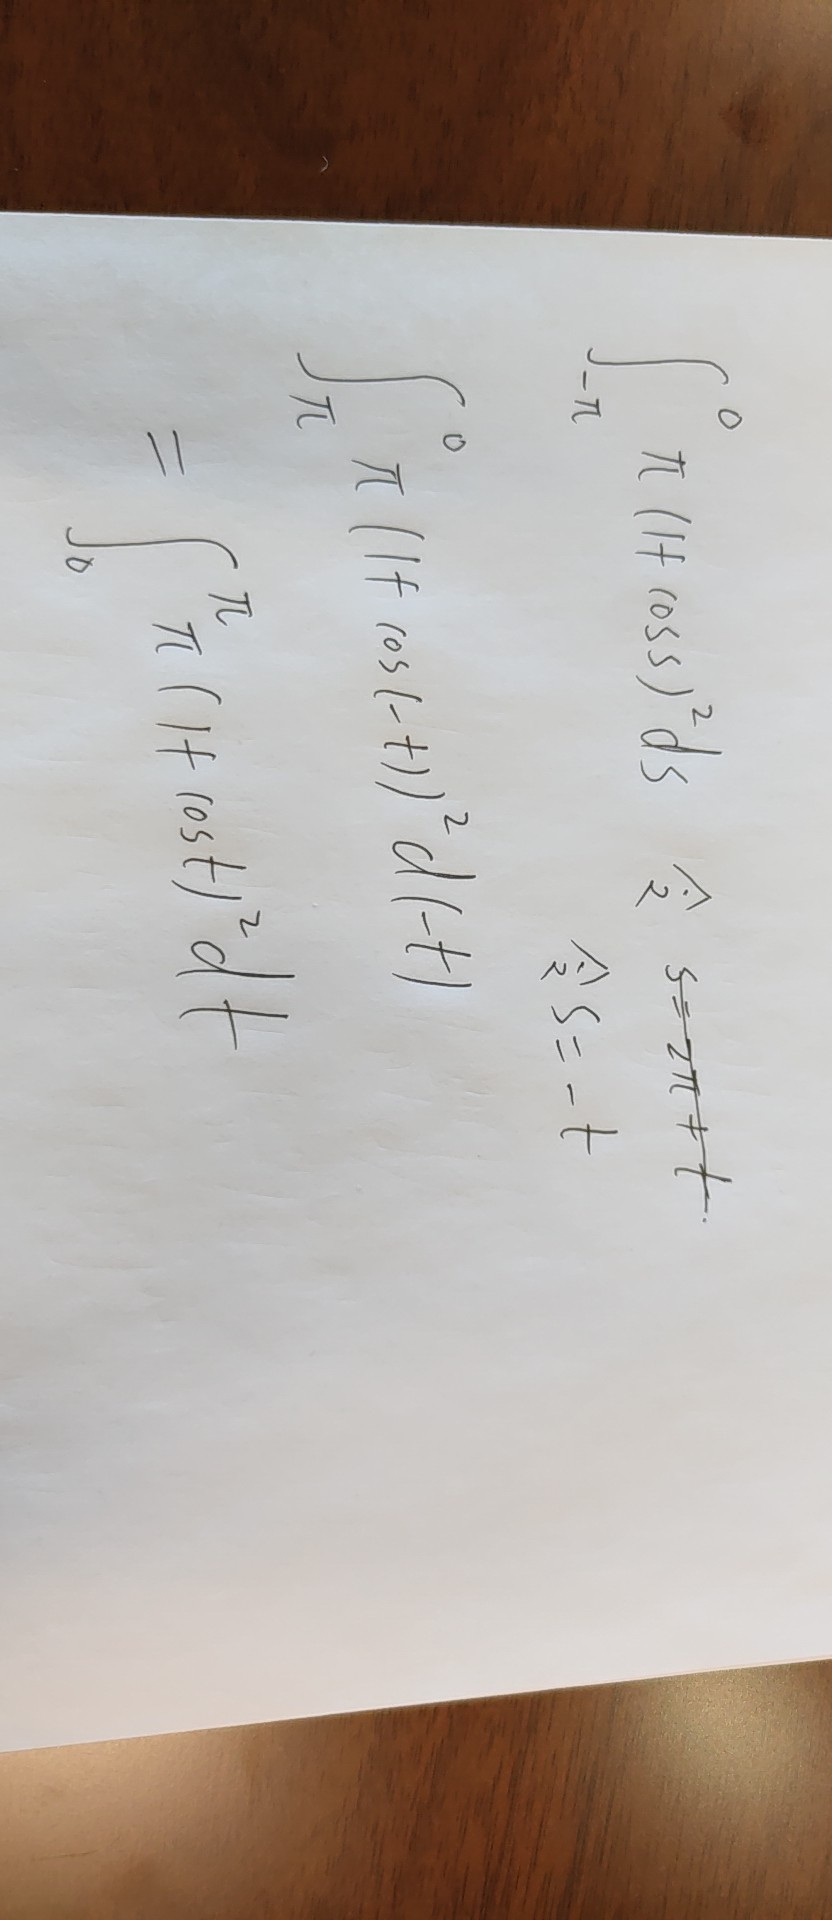 ∫_{-π}^{0} π(1+coss)²ds 令 s=2π+t.
令 s=-t
∫_{π}^{0} π(1+cos(-t))²d(-t)
= ∫_{0}^{π} π(1+cost)²dt